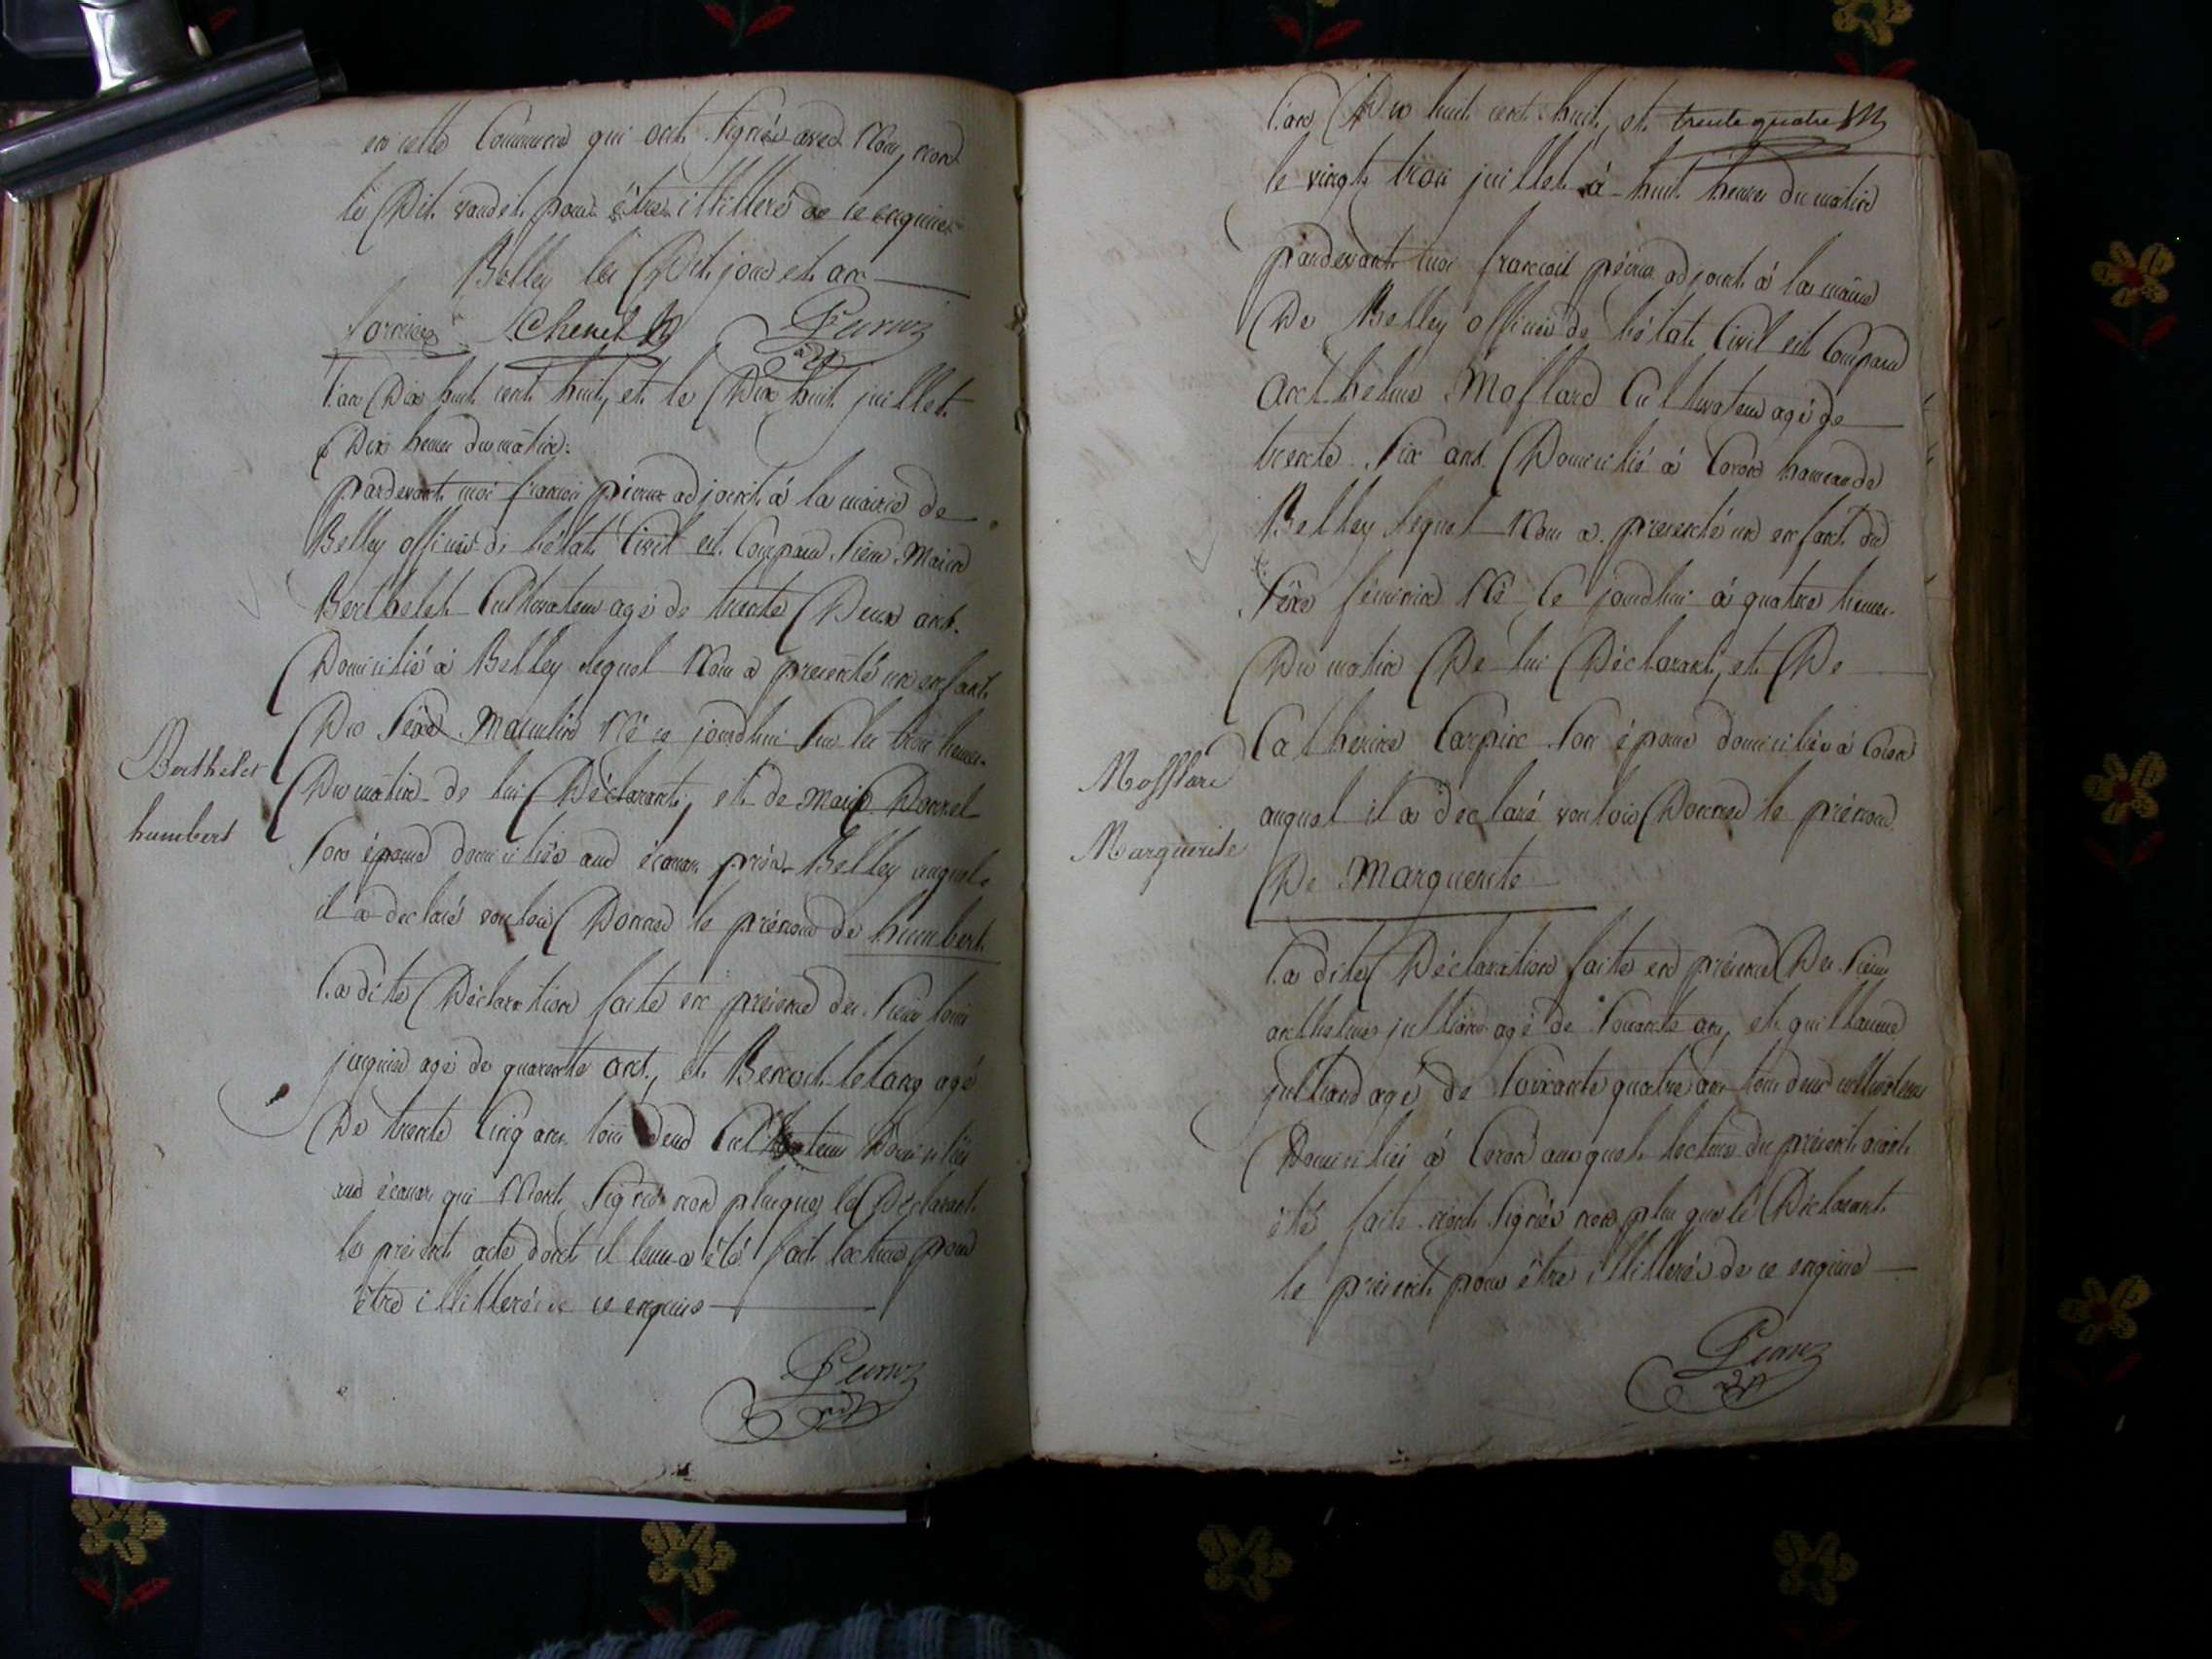 en cette Commune qui ont signés avec Nous, non
le Dit vaudet pour être illitteré de ce enquis
Belley les Dit jour et an
Chenel
Peiruz
adj
L'an Dix huit cent huit, et le Dix huit juillet
à Dix heures du matin.
pardevant moi francois péiruz adjoint à la mairie de
Belley officier de l'état Civil est Comparu sieur
Berthelet Cultivateur agé de trente Deux ans
Domicilié à Belley lequel Nous a presenté un enfant
Du séxe Masculin Né ce jourdhui sur les trois heures
Berthelet
Du matin de lui Déclarant, et de Marie
humbert
son épouse domiciliés aux écassaz près Belley auquel
il a declaré vouloir Donner le prénom de humbert.
La dite Déclaration faite en présence des sieurs louis
agé de quarante ans, et Benoit letang agé
De trente Cinq ans tous deux Cultivateurs Domiciliés
aux qui N'ont signés non plus que le Déclarant
le présent acte dont il leur a été fait lecture pour
être illitterés de ce enquis
Peiruz
adj
L'an Dix huit cent huit, et trente quatre
le vingt trois juillet à huit heures du matin
pardevant moi francois péiruz adjoint à la mairie
De Belley officier de l'état Civil est Comparu
Anthelme Moflard Cultivateur agé de
trente six ans Domicilié à Coron hameau de
Belley lequel Nous a presenté un enfant du
séxe féminin Né Ce jourdhui à quatre heures
Du matin De lui Déclarant, et De
Catherine Carpin son épouse domiciliés à Coron
Mofflard
auquel il a déclaré vouloir Donner le prénom
Marguerite
De Marguerite
La dite Déclaration faite en présence Des sieurs
anthelme julliand agé de soixante ans, et guillaume
julliand agé de soixante quatre ans tous deux cultivateurs
Domiciliés à Coron auxquels lecture du présent ayant
été faite n'ont signés non plus que le Déclarant
le présent pour être illitterés de ce enquis
Peiruz
adj